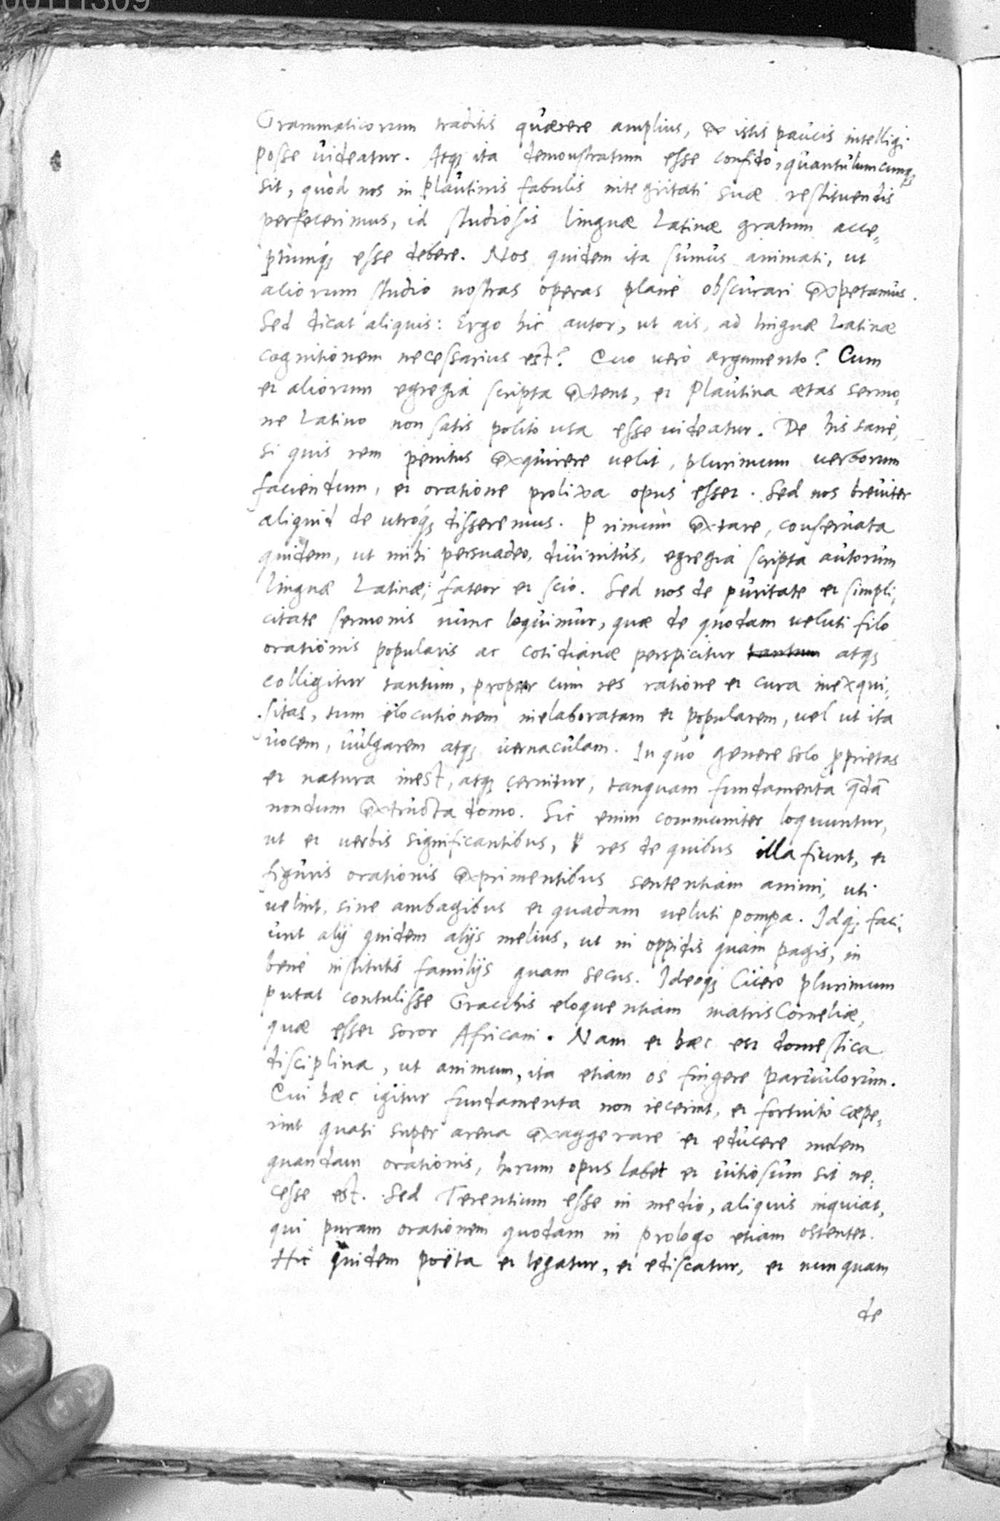 00111309
Grammaticorum traditis quærere amplius, de istis paucis intelligi
posse videatur. Atq; ita demonstratum esse confido, quantulumcunq;
sit, quod nos in Plautinis fabulis integritati suæ restituendis
perfecerimus, id studiosis linguæ Latinæ gratum acce,
ptumq; esse debere. Nos quidem ita sumus animati, ut
aliorum studio nostras operas planè obscurari expetamus.
Sed dicat aliquis: Ergo hic autor, ut ais, ad linguæ Latinæ
cognitionem necessarius est? Quo verò argumento? Cum
et aliorum egregia scripta extent, et Plautina ætas sermo,
ne Latino non satis polito usa esse videatur. De his sanè,
si quis rem penitus exquirere velit, plurimum verborum
faciendum, et oratione prolixa opus esset. Sed nos breviter
aliquid de utroq; disseremus. Primùm extare, conservata
quidem, ut mihi persuadeo, divinitùs, egregia scripta autorum
linguæ Latinæ; fateor et scio. Sed nos de puritate et simpli,
citate sermonis nunc loquimur, quæ de quodam veluti filo
orationis popularis ac cotidianæ perspicitur tantum atq;
colligitur tantùm, propter cùm res ratione et cura inexqui,
sitas, tum elocutionem inelaboratam et popularem, vel ut ita
vocem, vulgarem atq; vernaculam. In quo genere solo pprietas
et natura inest, atq; cernitur, tanquam fundamenta qdã
nondum extructa domo. Sic enim communiter loquuntur,
ut et verbis significantibus, res de quibus illa fiunt, et
figuris orationis exprimentibus sententiam animi, uti
velint, sine ambagibus et quadam veluti pompa. Idq; faci,
unt alij quidem alijs melius, ut in oppidis quàm pagis, in
benè institutis familijs quam secus. Ideoq; Cicero plurimum
putat contulisse Gracchis eloquentiam matris Corneliæ,
quæ esset soror Africani. Nam et hæc est domestica
disciplina, ut animum, ita etiam os fingere parvulorum.
Qui hæc igitur fundamenta non iecerint, et fortuitò cæpe,
rint quasi super arena exaggerare et educere molem
quandam orationis, horum opus labet et vitiosum sit ne,
cesse est. Sed Terentium esse in medio, aliquis inquiat,
qui puram orationem quodam in prologo etiam ostentet.
Hic quidem poëta et legatur, et ediscatur, et nunquam
de